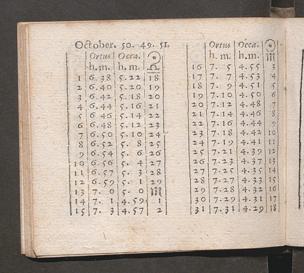 October. 50. 49. 51.
Ortus Occa. ☉
h. m. h. m. ♎
1 6. 38 5. 22 18
2 6. 40 5. 20 19
3 6. 42 5. 18 20
4 6. 44 5. 16 21
5 6. 46 5. 14 22
6 6. 48 5. 12 23
7 6. 50 5. 10 24
8 6. 52 5. 8 25
9 6. 54 5. 6 26
10 6. 56 5. 4 27
11 6. 57 5. 3 28
12 6. 59 5. 1 29
13 7. 0 5. 0 ♏
14 7. 1 4. 59 1
15 7. 3 4. 57 2
Ortus Occa. ☉
h. m. h. m. ♏
16 7. 5 4. 55 3
17 7. 7 4. 53 4
18 7. 9 4. 51 5
19 7. 10 4. 50 6
20 7. 12 4. 48 7
21 7. 14 4. 46 8
22 7. 16 4. 44 9
23 7. 18 4. 42 10
24 7. 19 4. 41 11
25 7. 21 4. 39 12
26 7. 23 4. 37 13
27 7. 25 4. 35 14
28 7. 27 4. 33 15
29 7. 28 4. 32 16
30 7. 29 4. 31 17
31 7. 31 4. 29 18